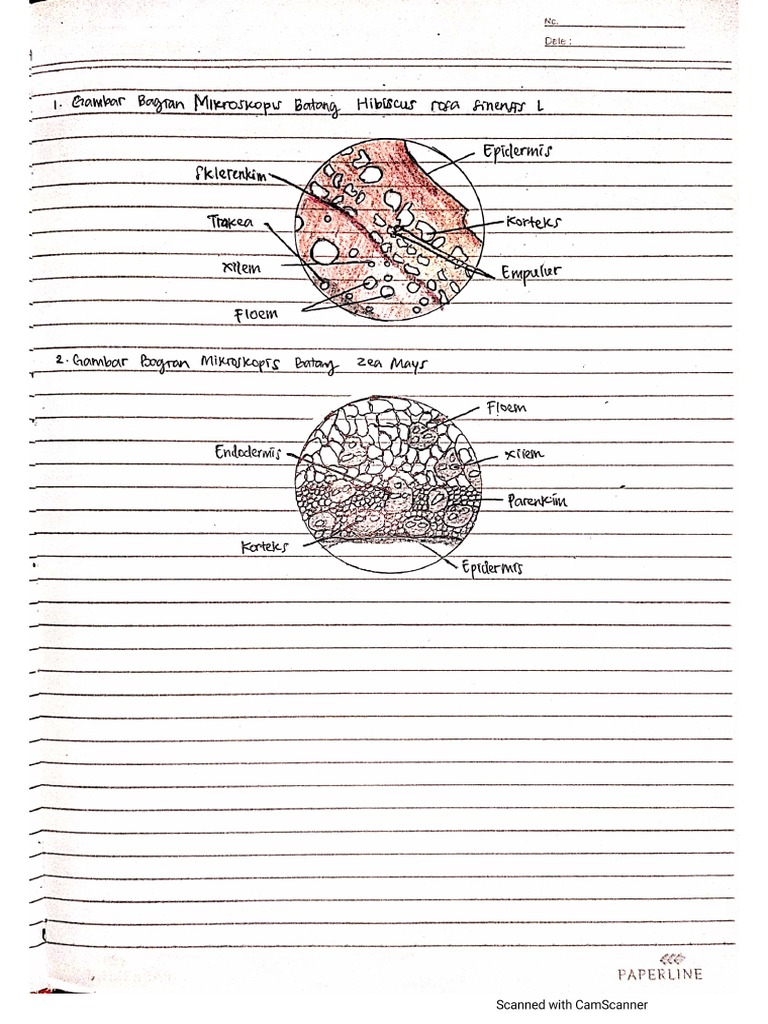 No.
Date :
1. Gambar Bagian Mikroskopis Batang Hibiscus rosa sinensis L
Epidermis
Sklerenkim
Trakea
Korteks
Xilem
Empulur
Floem
2. Gambar Bagian Mikroskopis Batang Zea Mays
Floem
Endodermis
Xilem
Parenkim
Korteks
Epidermis
PAPERLINE
Scanned with CamScanner